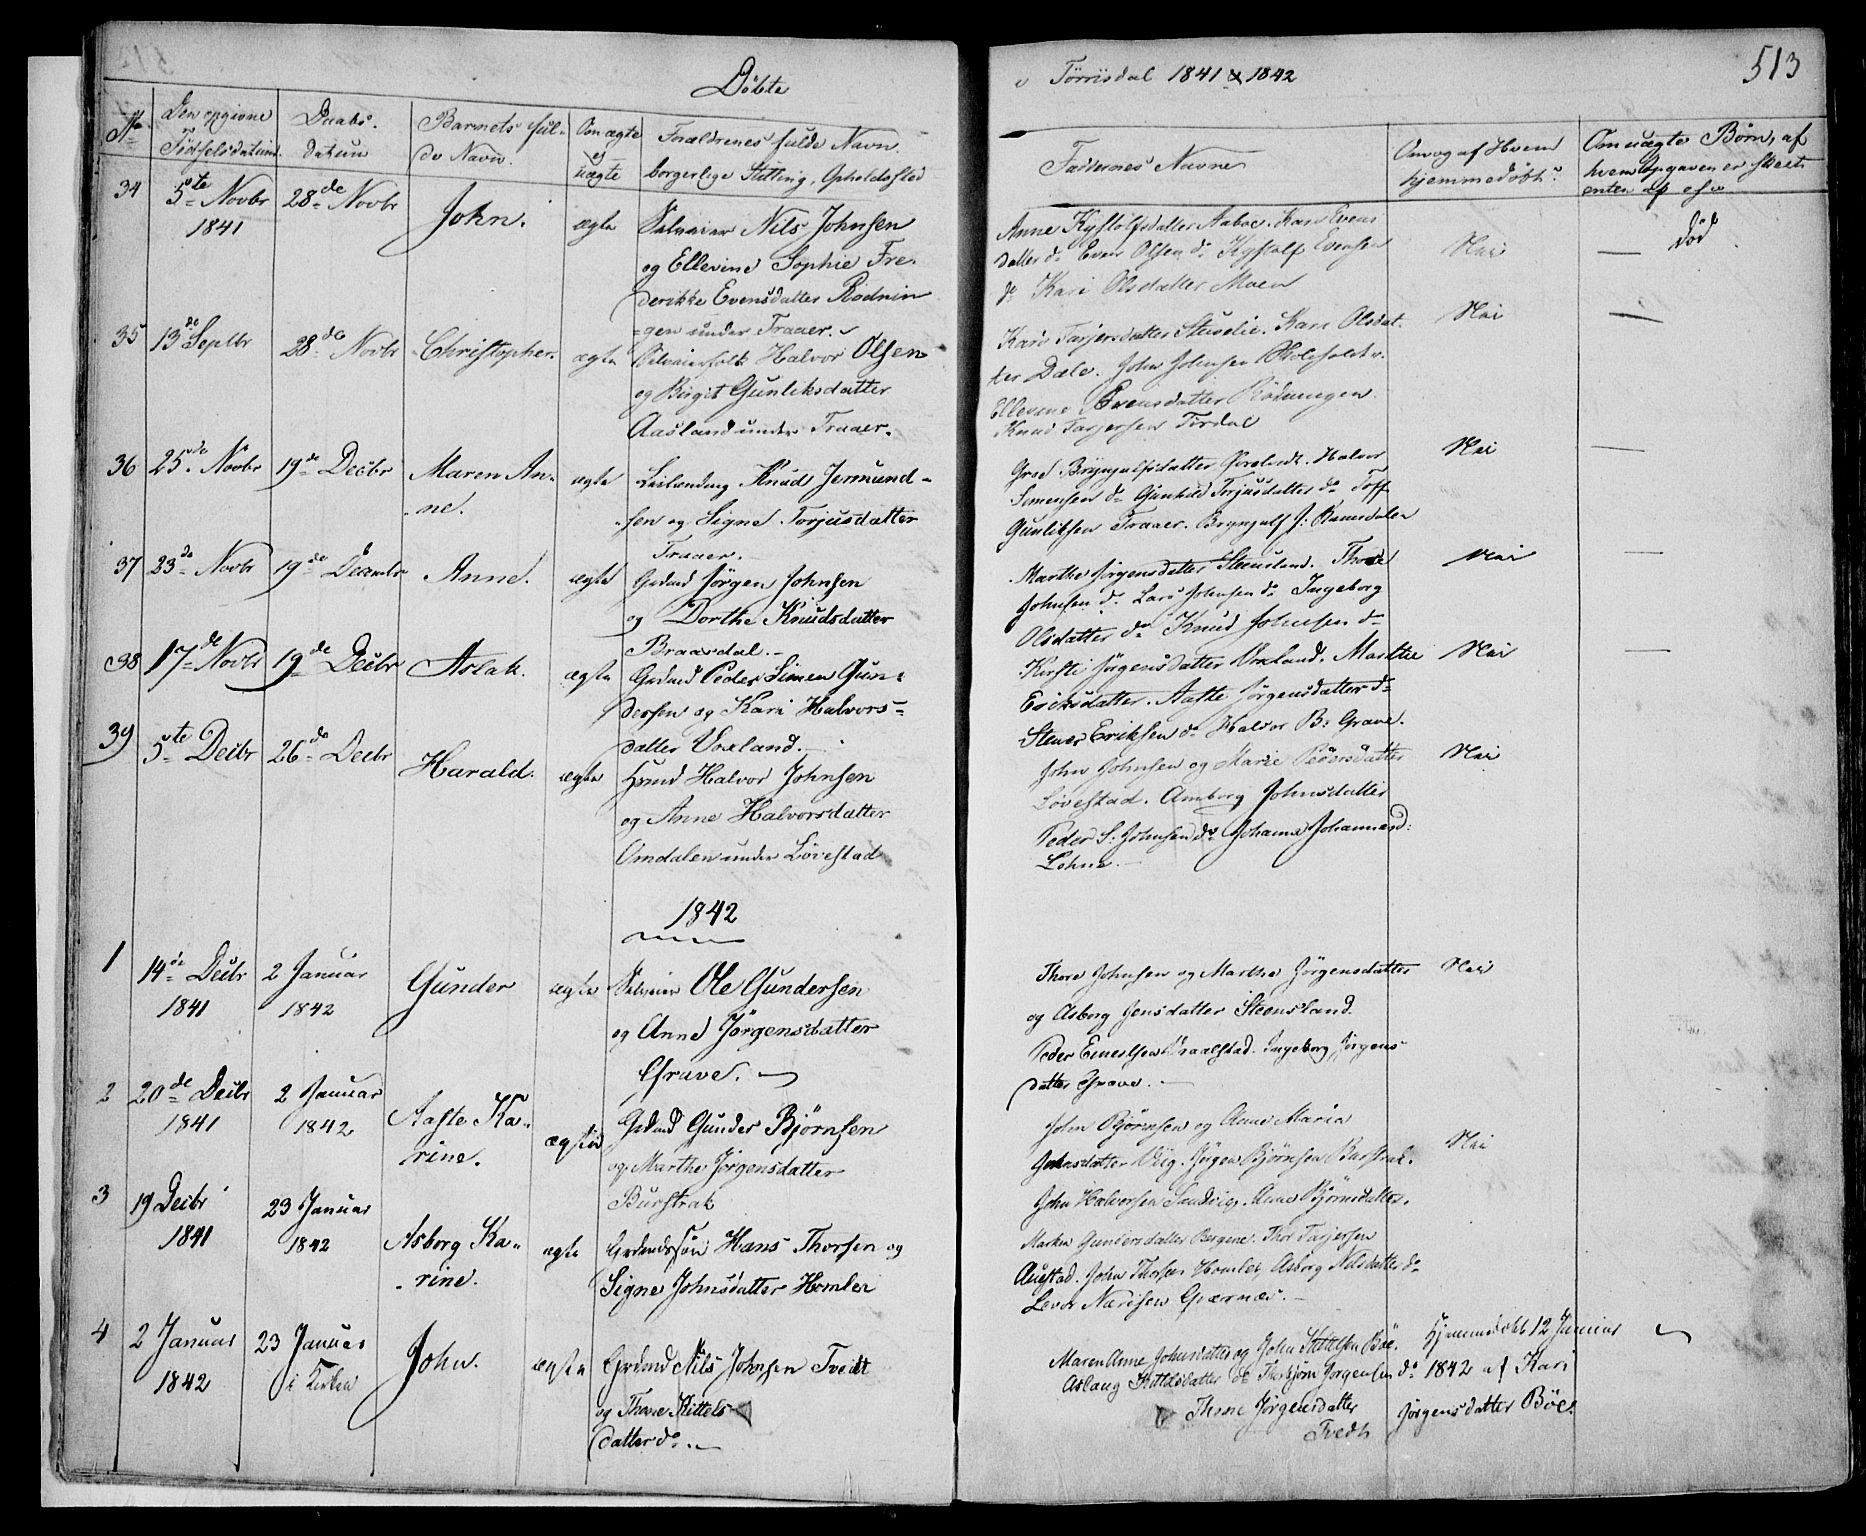 Døbte
i Tørrisdal 1841 & 1842
513
No
Den opgivne
Fødselsdatum.
Daabs-
datum
Barnets ful-
de Navn.
Om ægte
el
uægte
Forældrenes fulde Navn
borgerlige Stilling, Opholdssted
Faddernes Navne
Om og af Hvem
hjemmedøbt.
Om uægte Børn, af
hvem Opgaven er skeet
34
5te Novbr
1841
28de Novbr
John.
ægte
Selveier Nils Johnsen
og Ellevine Sophie Fre-
derikke Evensdatter Rødnin
=gen under Traaer.
Anne Kystolfsdatter Aaboe. Kari Evens
datter do Even Olsen do Kystolf Evensen
do Kari Olsdatter Moen
Nei
—
død
35
13de Septbr
28de Novbr
Christopher.
ægte
Halvor Olsen
og Birgit Gunliksdatter
Aasland under Traaer.
Kari Tarjersdatter Stuvelie. Kari Olsdat-
ter Dale. John Johnsen
Ellevine Evensdatter Rødningen
Knud Tarjersen Tørdal
Nei
—
36
25de Novbr
19de Decbr
Maren An-
ne.
ægte
Leilænding Knud Jermund-
sen og Signe Torjusdatter
Traaer.
Groe Brynjulfsdatter Halvor
Simensen do Gunhild Torjusdatter do Toff
Gunliksen Traaer. Brynjulf J: Ramsdalen
Nei
—
37
23de Novbr
19de Decembr
Anne.
ægte
Grdmd Jørgen Johnsen
og Dorthe Knudsdatter
Braardal.
Marthe Jørgensdatter Steensland. Thore
Johnsen do Lars Johnsen do Ingeborg
Olsdatter do Knud Johnsen do
Nei
—
38
17de Novbr
19de Decbr
Aslak.
ægte
Grdmd Peder Simen Gun-
dersen og Kari Halvors=
datter Voxland.
Kirsti Jørgensdatter Voxland. Marthe
Eriksdatter. Aaste Jørgensdatter do
Stener Eriksen do Halvor B: Grave.
Nei
—
39
5te Decbr
26de Decbr
Harald.
ægte
Hsmd Halvor Johnsen
og Anne Halvorsdatter
Omdalen under Løvestad
John Johnsen og Marie Pedersdatter
Løvestad. Amborg Johnsdatter
Peder S: Johnsen do Johanne Johannesd:
Lohne.
Nei
1842
1
14de Decbr
1841
2 Januar
1842
Gunder
ægte
Selveier Ole Gundersen
og Anne Jørgensdatter
Grave.
Thore Johnsen og Marthe Jørgensdatter
og Asborg Jensdatter Steensland.
Peder Ingeborg Jørgens
datter Grave.
Nei
2
20de Decbr
1841
2 Januar
1842
Aaste Ka-
rine.
ægte
Grdmd Gunder Bjørnsen
og Marthe Jørgensdatter
Burstrak
John Bjørnsen og Anne Maria
Johnsdatter Viig. Jørgen Bjørnsen Burstrak.
John Halvorsen Sandvig. Anne Bjørnsdatter.
Nei
3
19 Decbr
1841
23 Januar
1842
Asborg Ka-
rine.
ægte
Grdmdssøn Hans Thorsen og
Signe Johnsdatter Homler
Maren Gundersdatter Bergene. Thor Tarjersen
Auestad. John Thorsen Homler, Asborg Nilsdatter do
4
2 Januar
1842
23 Januar
i Kirken
John.
ægte
Grdmd Nils Johnsen Tvedt
og Thone Kittels-
datter do.
Maren Anne Johnsdatter og John Kittelsen Bøe.
Aslaug Kittilsdatter do Thorbjørn Jørgensen do
Thone Jørgensdatter
Tvedt
Hjemmedøbt 12 Januar
1842 af Kari
Jørgensdatter Bøe.